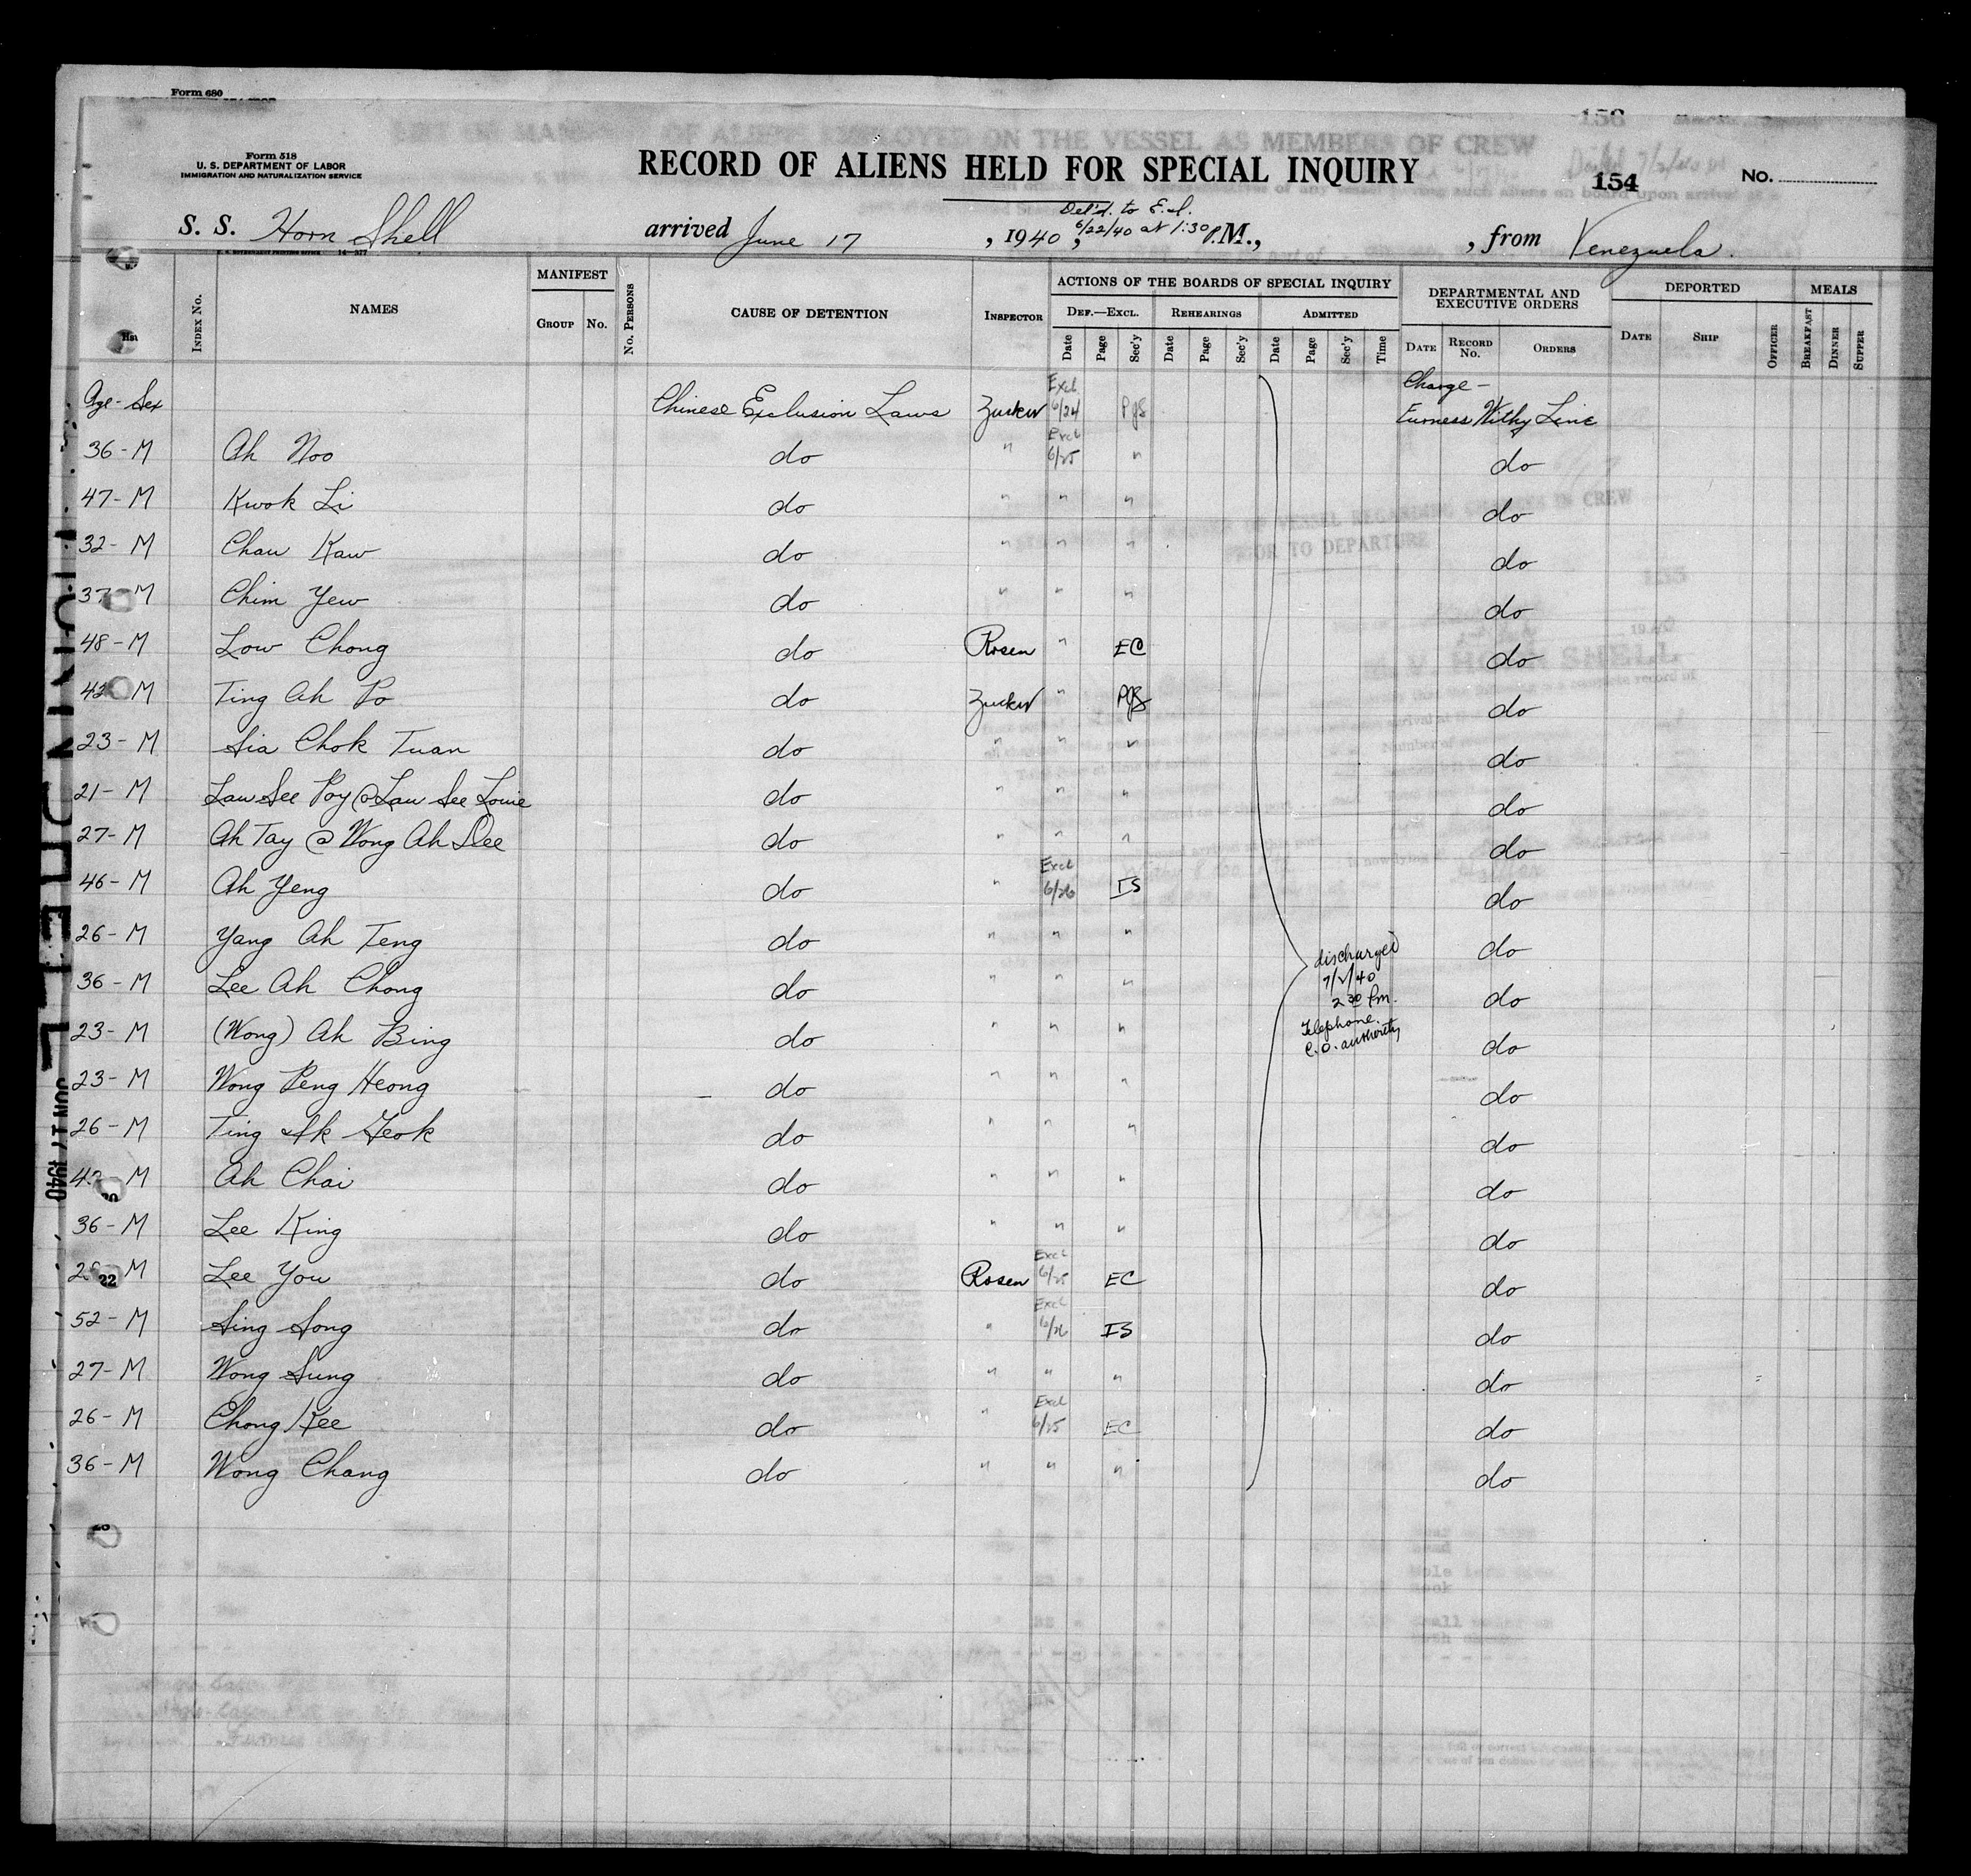 Form 680
Form 518
U. S. DEPARTMENT OF LABOR
IMMIGRATION AND NATURALIZATION SERVICE
RECORD OF ALIENS HELD FOR SPECIAL INQUIRY
154 No.
Del'd. to E.I.
S. S. Horn Shell arrived June 17, 1940, 6/22/40 at 1:30 P.M., from Venezuela.
Index No. NAMES MANIFEST Group No. No. Persons CAUSE OF DETENTION Inspector ACTIONS OF THE BOARDS OF SPECIAL INQUIRY Def.—Excl. Date Page Sec'y Rehearings Date Page Sec'y Admitted Date Page Sec'y Time DEPARTMENTAL AND EXECUTIVE ORDERS Date Record No. Orders DEPORTED Date Ship Officer MEALS Breakfast Dinner Supper
Age - Sex Chinese Exclusion Laws Zucker Excl. 6/24 PJS Charge - Furness Withy Line
36 - M Ah Noo do " Excl 6/25 " do
47 - M Kwok Li do " " " do
32 - M Chau Kaw do " " " do
37 M Chim Yew do " " " do
48 - M Low Chong do Rosen " EC do
42 M Ting Ah Po do Zucker " PJS do
23 - M Sia Chok Tuan do " " " do
21 - M Lau See Poy @ Lau See Louie do " " " do
27 - M Ah Tay @ Wong Ah Dee do " " " do
46 - M Ah Yeng do " Excl 6/26 IS do
26 - M Yang Ah Teng do " " " do
36 - M Lee Ah Chong do " " " do
23 - M (Wong) Ah Bing do " " " do
23 - M Wong Peng Heong do " " " do
26 - M Ting Ik Geok do " " " do
M Ah Chai do " " " do
36 - M Lee King do " " " do
22 M Lee You do Rosen Excl 6/25 EC do
52 - M Sing Song do " Excl 6/26 IS do
27 - M Wong Sung do " " " do
26 - M Chong Kee do " Excl 6/25 EC do
36 - M Wong Chang do " " " do
discharged
7/2/40
2 30 Pm.
Telephone.
C.O. authority
JUN 17 1940